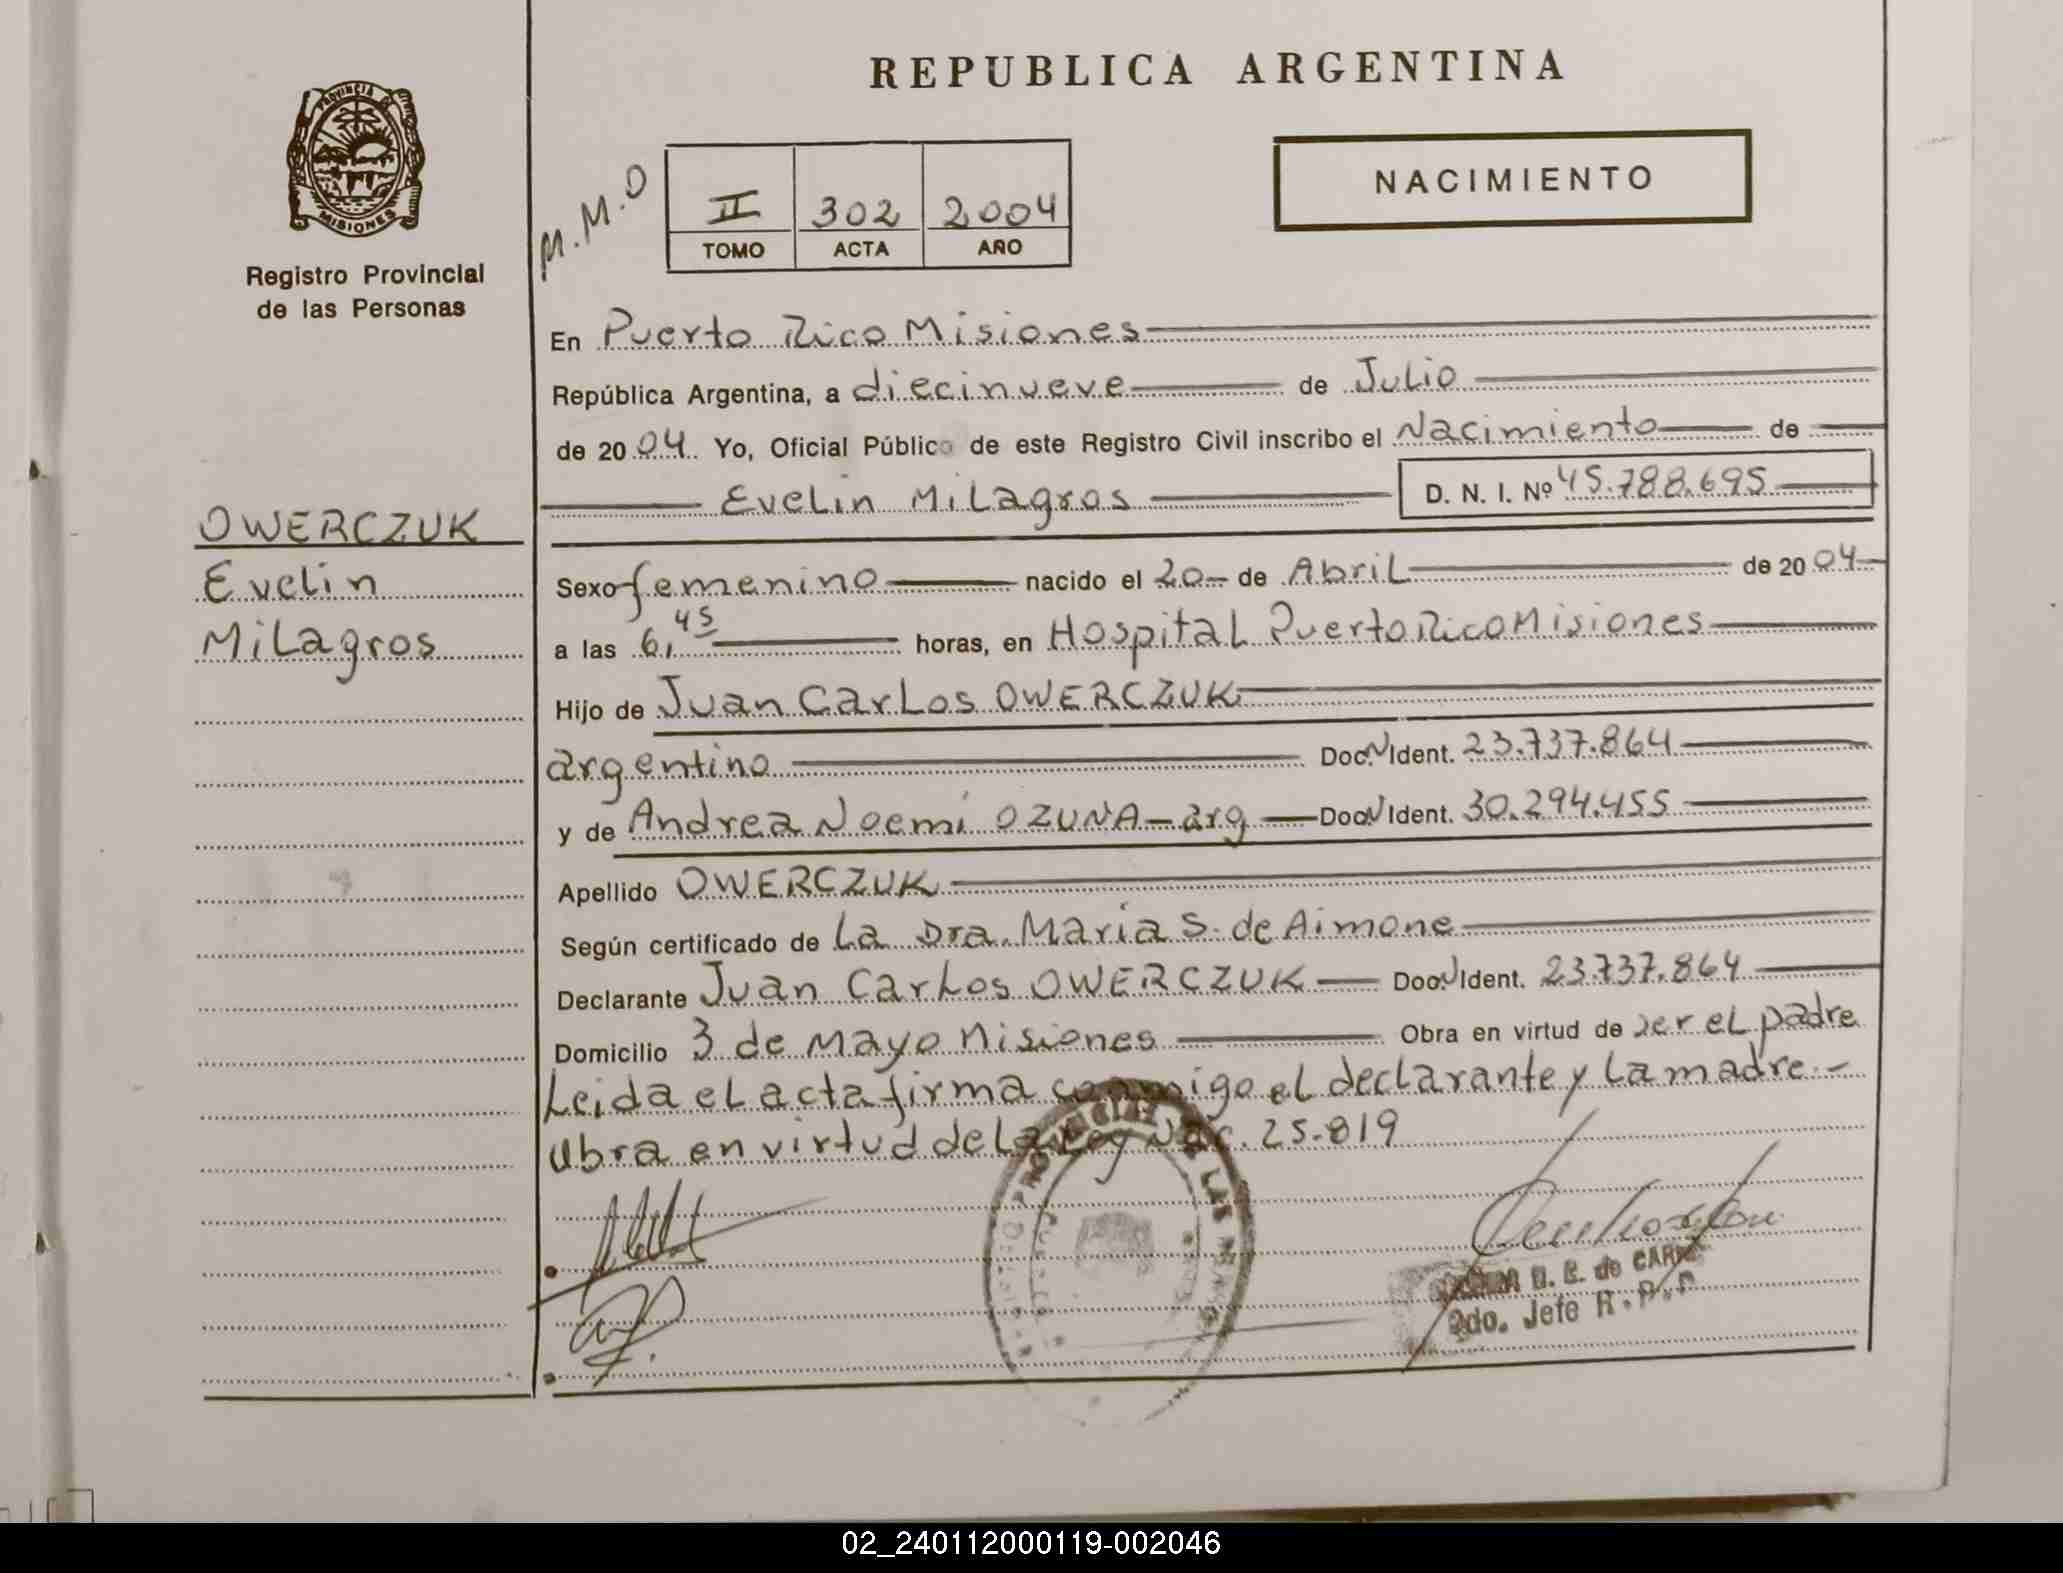 REPUBLICA ARGENTINA
PROVINCIA DE
MISIONES
Registro Provincial
de las Personas
M.M.O
II 302 2004
TOMO ACTA AÑO
NACIMIENTO
En Puerto Rico Misiones
República Argentina, a diecinueve de Julio
de 2004 Yo, Oficial Público de este Registro Civil inscribo el Nacimiento de
Evelin Milagros D. N. I. Nº 45.788.695
OWERCZUK
Evelin
Milagros
Sexo femenino nacido el 20 de Abril de 2004
a las 6,45 horas, en Hospital Puerto Rico Misiones
Hijo de Juan Carlos OWERCZUK
argentino Doc. N Ident. 23.737.864
y de Andrea Noemí OZUNA - arg Doc. N Ident. 30.294.455
Apellido OWERCZUK
Según certificado de La Dra. María S. de Aimone
Declarante Juan Carlos OWERCZUK Doc. N Ident. 23.737.864
Domicilio 3 de Mayo Misiones Obra en virtud de ser el padre
Leida el acta firma conmigo el declarante y la madre.-
Obra en virtud de la Ley Nac. 25.819
de CARD
2do. Jefe R.P.P
02_240112000119-002046